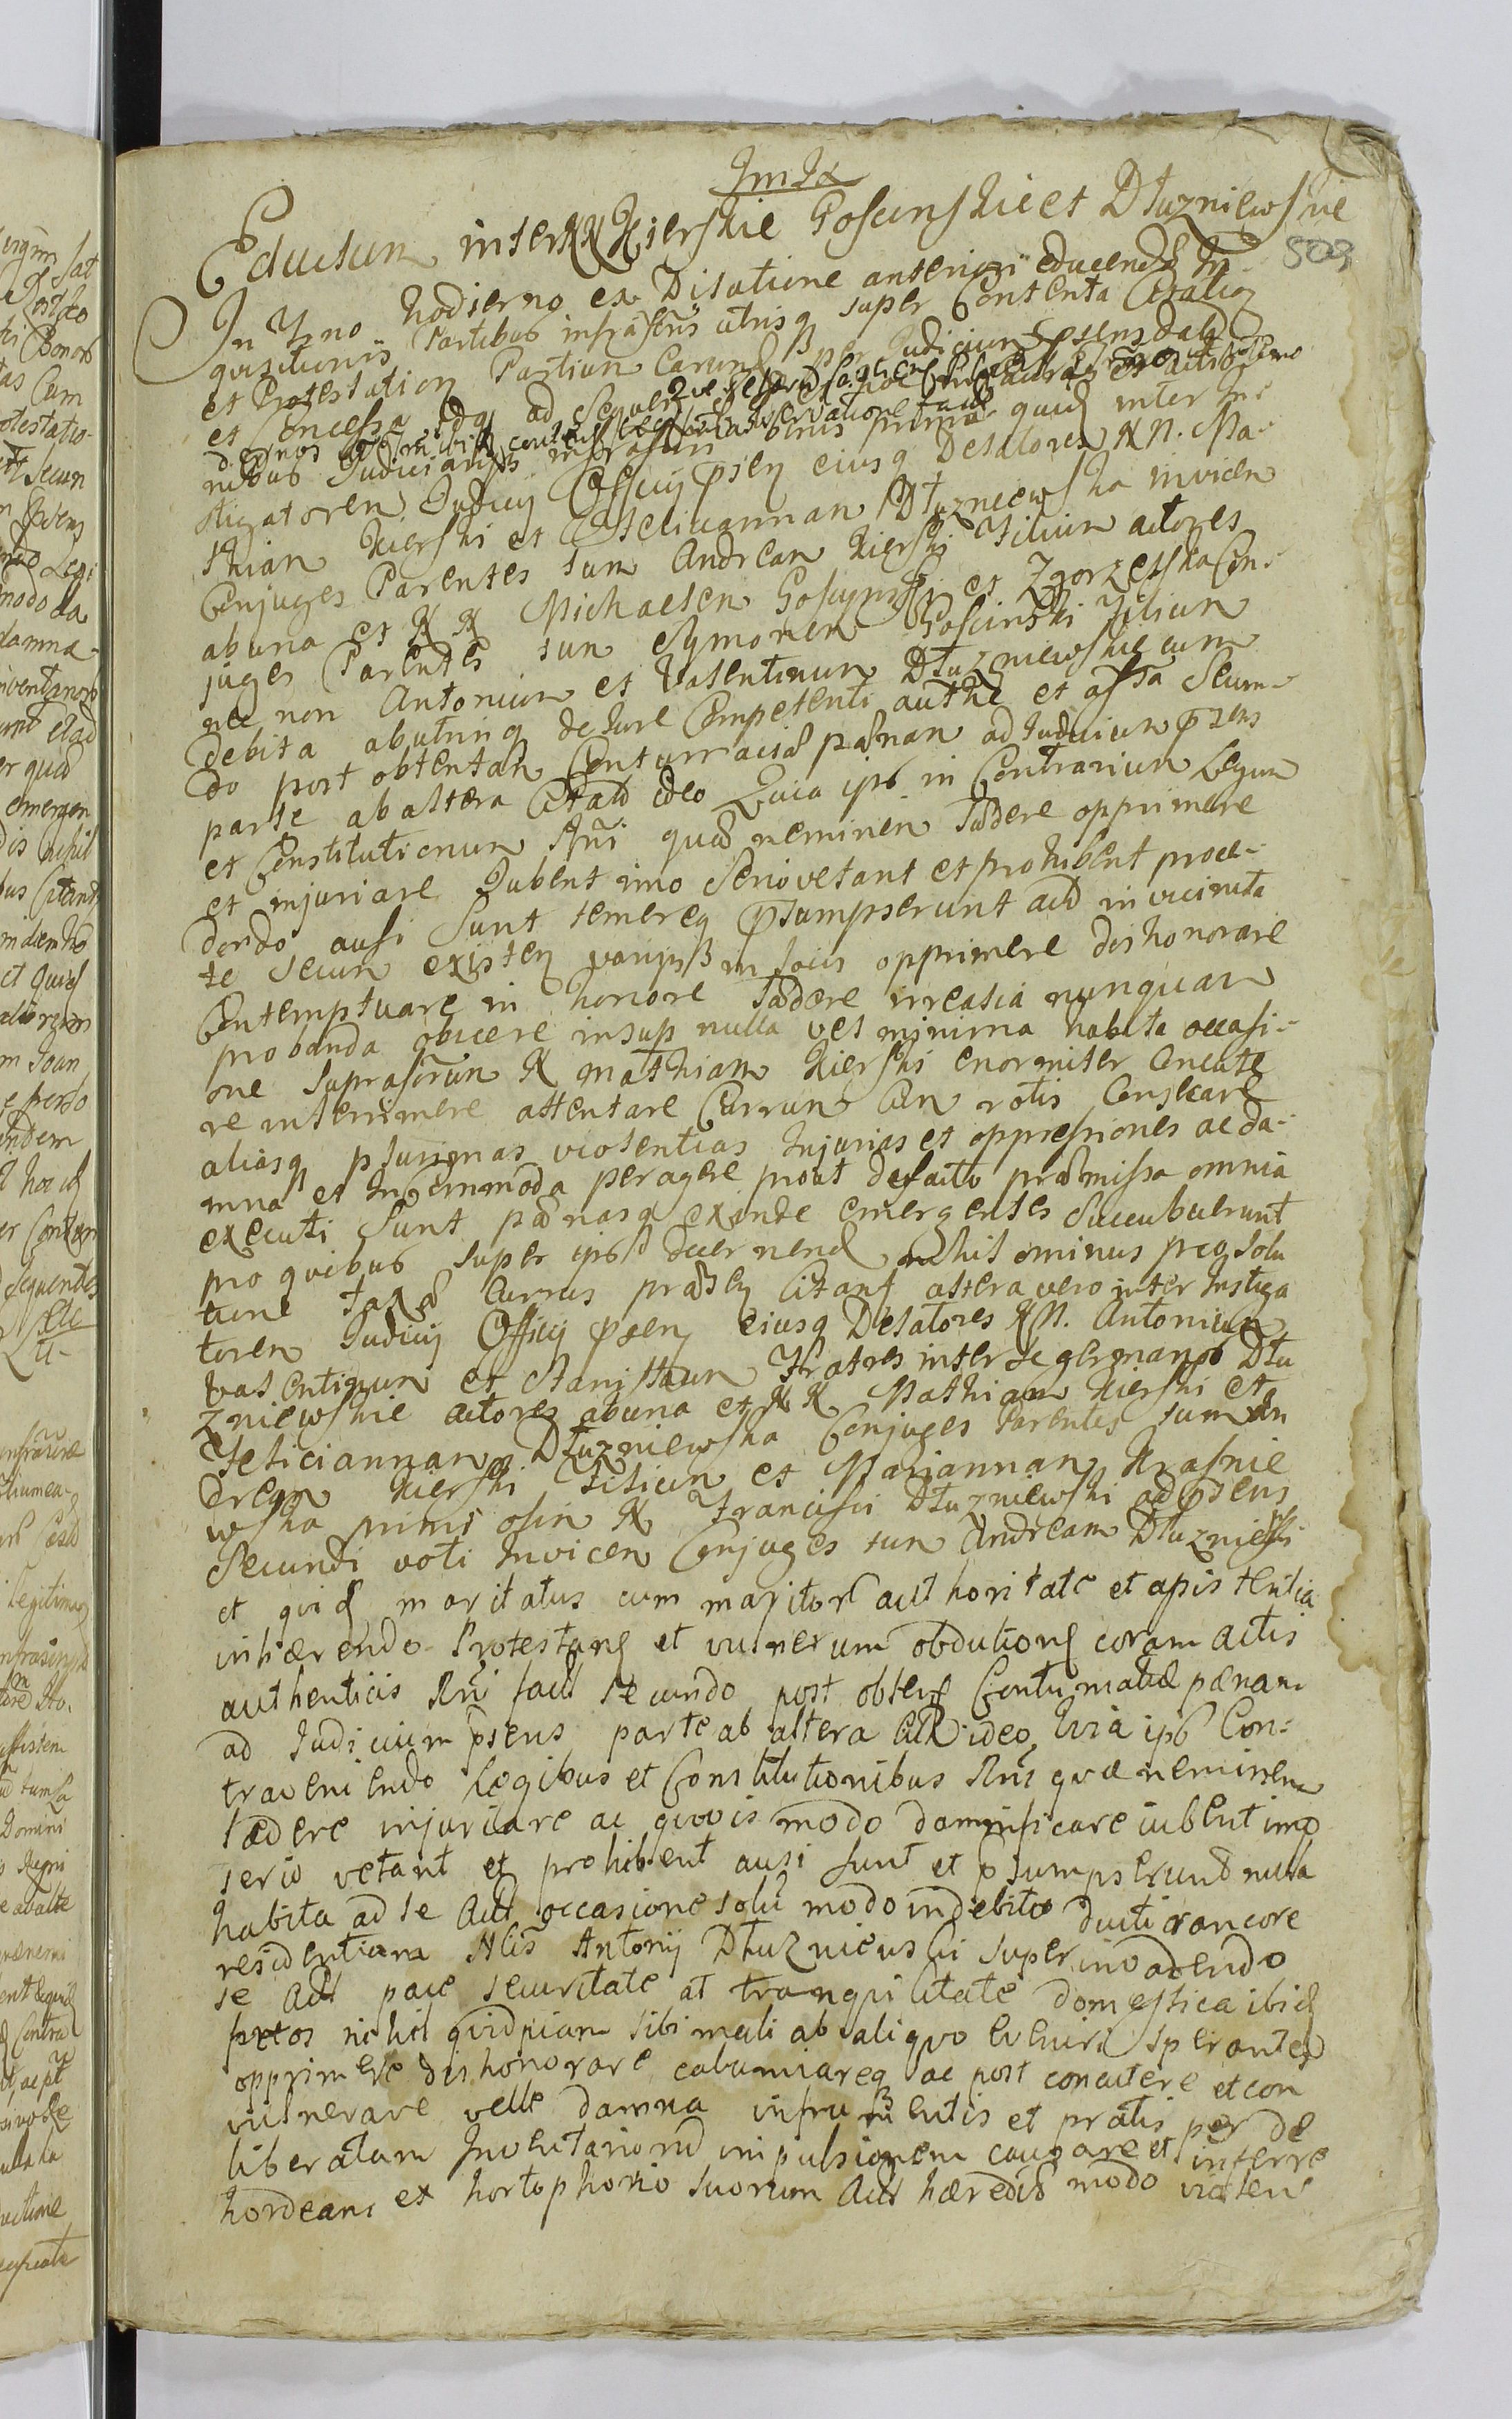 Eductum inter NN Kierskie Goscinskie et Dłuzniewskie
503
In Tno hodierno ex Dilatione anteriori educendae In-
quisitionis Partibus infrascriptis utrisq super Contenta Citatio
et Protestation Partium earund per Judicium praesens
et concessa idq ad
nibus Judiciariis infrascriptis binis prima quid inter In-
stigatorem Judicy Officy psen eiusq Delatores NN. Ma-
thiam Kierski et Feliciannam Dłuzniewska invicem
Conjuges Parentes tum Andream Kierski Filium actores
ab una et NN Michaelem Goscynski et Zgorzelska Con-
juges Parentes tum Symonem Goscinski Filium
nec non Antonium et Valentinum Dłuzniewskie cum
debita ab utrinq de Jure Competenti autthe et assa Secun-
do post obtentam Contumaciae paenam ad Judicium psens
parte ab altera Citatos ideo Quia ipsi in Contrarium Legum
et Constitutionum Rni quae neminem Ladere opprimere
et injuriare Jubent imo Serio vetant et prohibent proce-
dendo ausi Sunt temereq psumpserunt actores in vicinita
te secum existen varijs in locis opprimere dishonorare
Contemptuare in honore Ladere irrealia nunquam
probanda obicere insup nulla vel minima habita occasi-
one suprascrum N Mathiam Kierski enormiter Concute
re interimere attentare Currum Cum rotis Consecare
aliasq plurimas violentias Injurias et oppressiones ac da-
mna et Incommoda peragere prout de facto praemissa omnia
executi Sunt paenasq exinde emergentes Succubuerunt
pro quibus super ipsis decernend nihilominus pro solu
tione taxae Currus praesen Citant altera vero inter Instiga
torem Judicy Officy psen eiusq Delatores NN. Antonium
Valentinum et Stanislaum Fratres inter se germanos Dłu
zniewskie actores ab una et NN Mathiam Kierski et
Feliciannam Dłuzniewska Conjuges Parentes tum An
dream Kierski Filium et Mariannam Krasnie
wska primi olim N Francisci Dłuzniewski ad psens
Secundi voti Invicem Conjuges tum Andream Dłuzniewski
et quid maritatus cum maritor authoritate et assistentia
inhaerendo Protestan et vulnerum obductione coram actis
authenticis Rni fact Secundo post obten Contumatiae paenam
ad Judicium psens parte ab altera Cit ideo Quia ipsi Con-
traveniendo Legibus et Constitutionibus Rni quae neminem
Laedere injuriare ac quovis modo damnificare iubent imo
serio vetant et prohibent ausi sunt et psumpserunt nulla
habita ad se Act occasione solu modo indebito ducti rancore
residentiam Nlis Antonij Dłuzniewski superinvadendo
se Act pace securitate at tranquilitate domestica ibid
fretos nichil quidpiam sibi mali ab aliquo evenire sperantes
opprimere dishonorare calumniareq ac post concutere et con
vulnerare velle damna in frumentis et pratis per de
liberatam Inventariorum impulsionem causare et inferre
hordeam ex hortophorio suorum Act haeredis modo violen